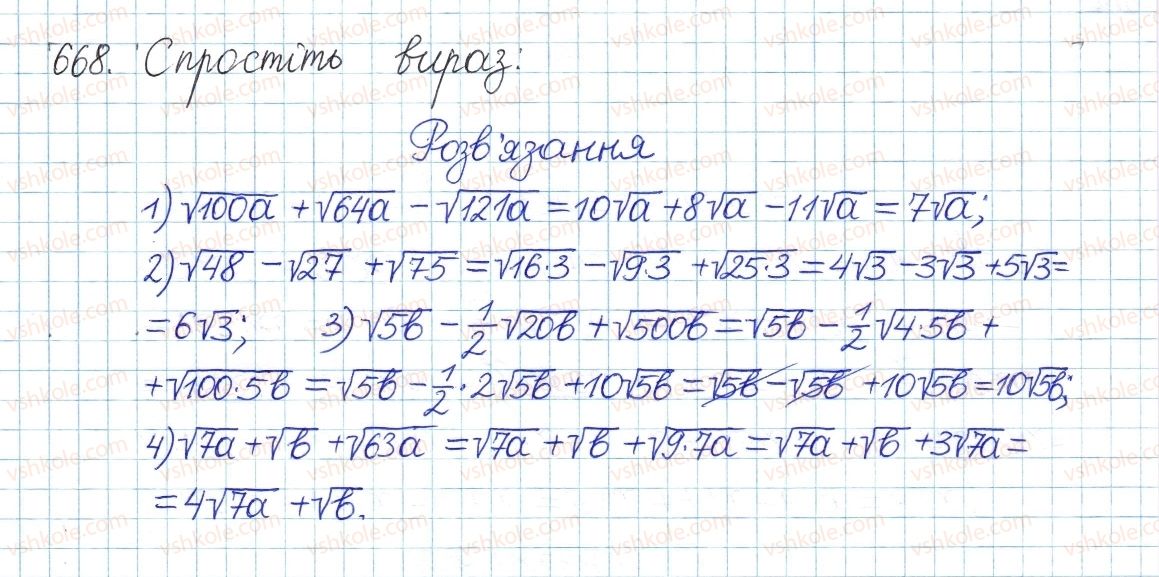 668. Спростіть вираз:
Розв'язання
1) √100a + √64a − √121a = 10√a + 8√a − 11√a = 7√a;
2) √48 − √27 + √75 = √16·3 − √9·3 + √25·3 = 4√3 − 3√3 + 5√3 =
= 6√3; 3) √5b − 1/2 √20b + √500b = √5b − 1/2 √4·5b +
+ √100·5b = √5b − 1/2 · 2√5b + 10√5b = √5b − √5b + 10√5b = 10√5b;
4) √7a + √b + √63a = √7a + √b + √9·7a = √7a + √b + 3√7a =
= 4√7a + √b.